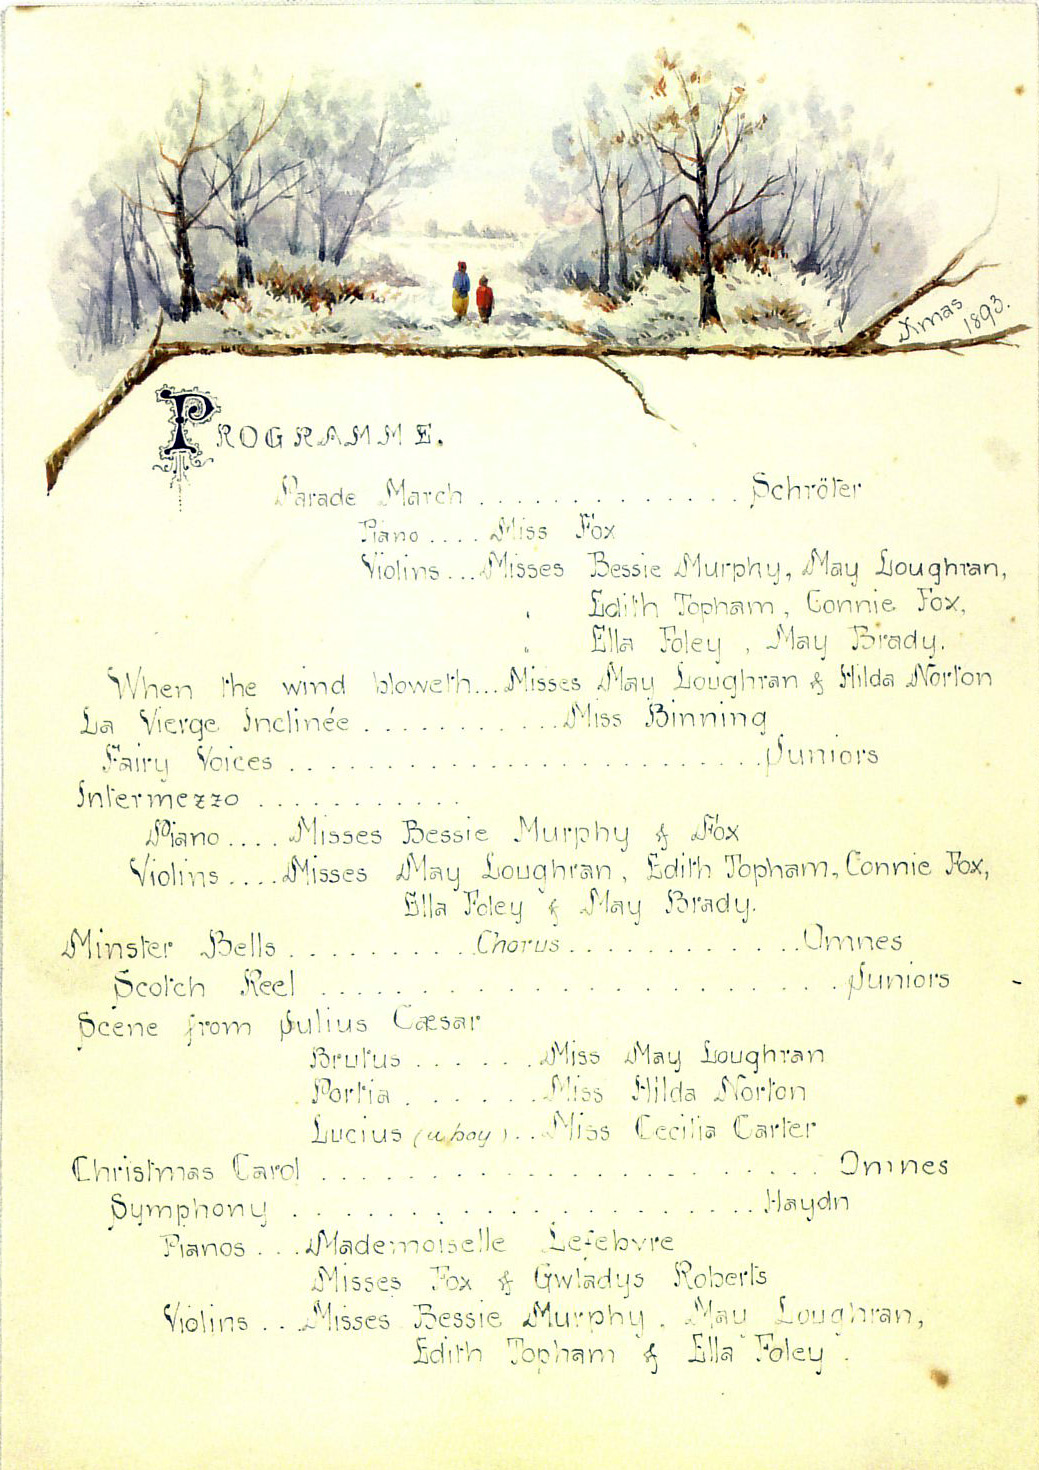 Xmas
1893.
PROGRAMME.
Parade March ............. Schröter
Piano .... Miss Fox
Violins ... Misses Bessie Murphy, May Loughran,
" Edith Topham, Connie Fox,
" Ella Foley, May Brady.
When the wind bloweth... Misses May Loughran & Hilda Norton
La Vierge Inclinée ........... Miss Binning
Fairy Voices ......................... Juniors
Intermezzo ...........
Piano .... Misses Bessie Murphy & Fox
Violins .... Misses May Loughran, Edith Topham, Connie Fox,
Ella Foley & May Brady.
Minster Bells .......... Chorus ............ Omnes
Scotch Reel ..................... Juniors
Scene from Julius Cæsar
Brutus ...... Miss May Loughran
Portia ...... Miss Hilda Norton
Lucius (a boy) .. Miss Cecilia Carter
Christmas Carol ..................... Omnes
Symphony .................... Haydn
Pianos ... Mademoiselle Lefebvre
Misses Fox & Gwladys Roberts
Violins ... Misses Bessie Murphy, May Loughran,
Edith Topham & Ella Foley.